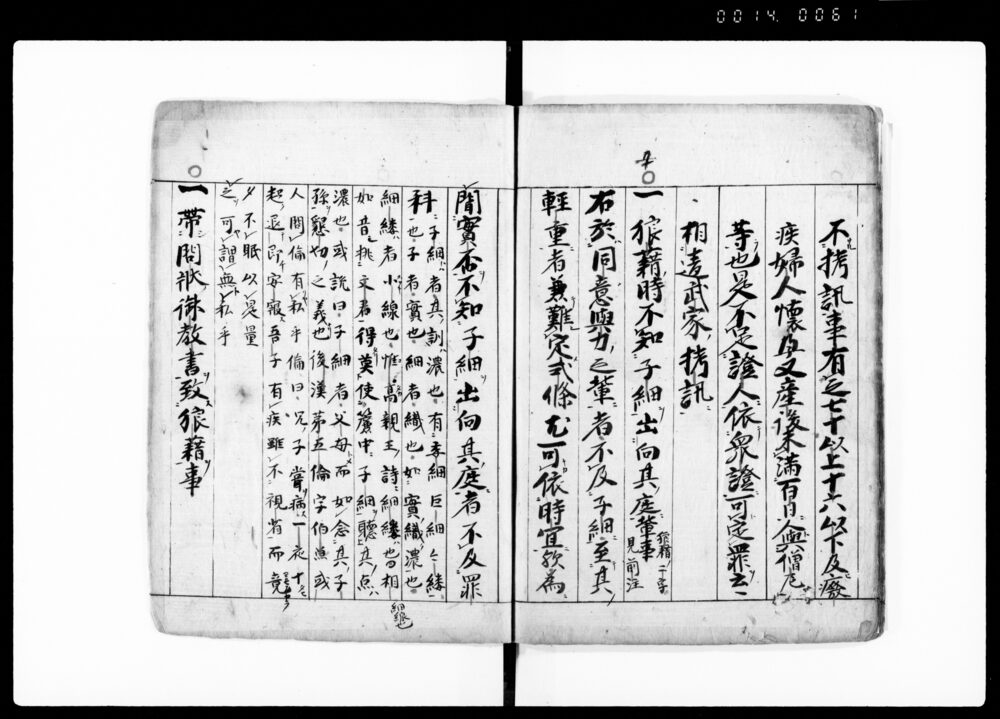 0014.0061
不拷訊事有之七十以上十六以下及癈
疾婦人懐孕又産後未満百日人與僧尼
等也是不足證人依衆證可定罪云〻
相違武家拷訊
一 狼藉時不知子細出向其庭輩事 狼藉二字 見前注
右於同意與力之輩者不及子細至其
輕重者兼難定式條尤可依時宜歟為
聞實否不知子細出向其庭者不及罪
科 子細者其訓濃也有委細巨細〻〻縁
也子者實也細者織也如實織濃也
細縷者小線也惟高親王詩細縷也相
如昔挑文君得莫使簾中子細聽其点
濃也或説曰子細者父母而如念其子
孫懇切之義也後漢第五倫字伯魚或
人問倫有私乎倫曰兄子嘗病一夜十
起退而安寝吾子有疾雖不視省而竟
夕不眠以是量
之可謂無私乎
一 帯問状御教書致狼藉事